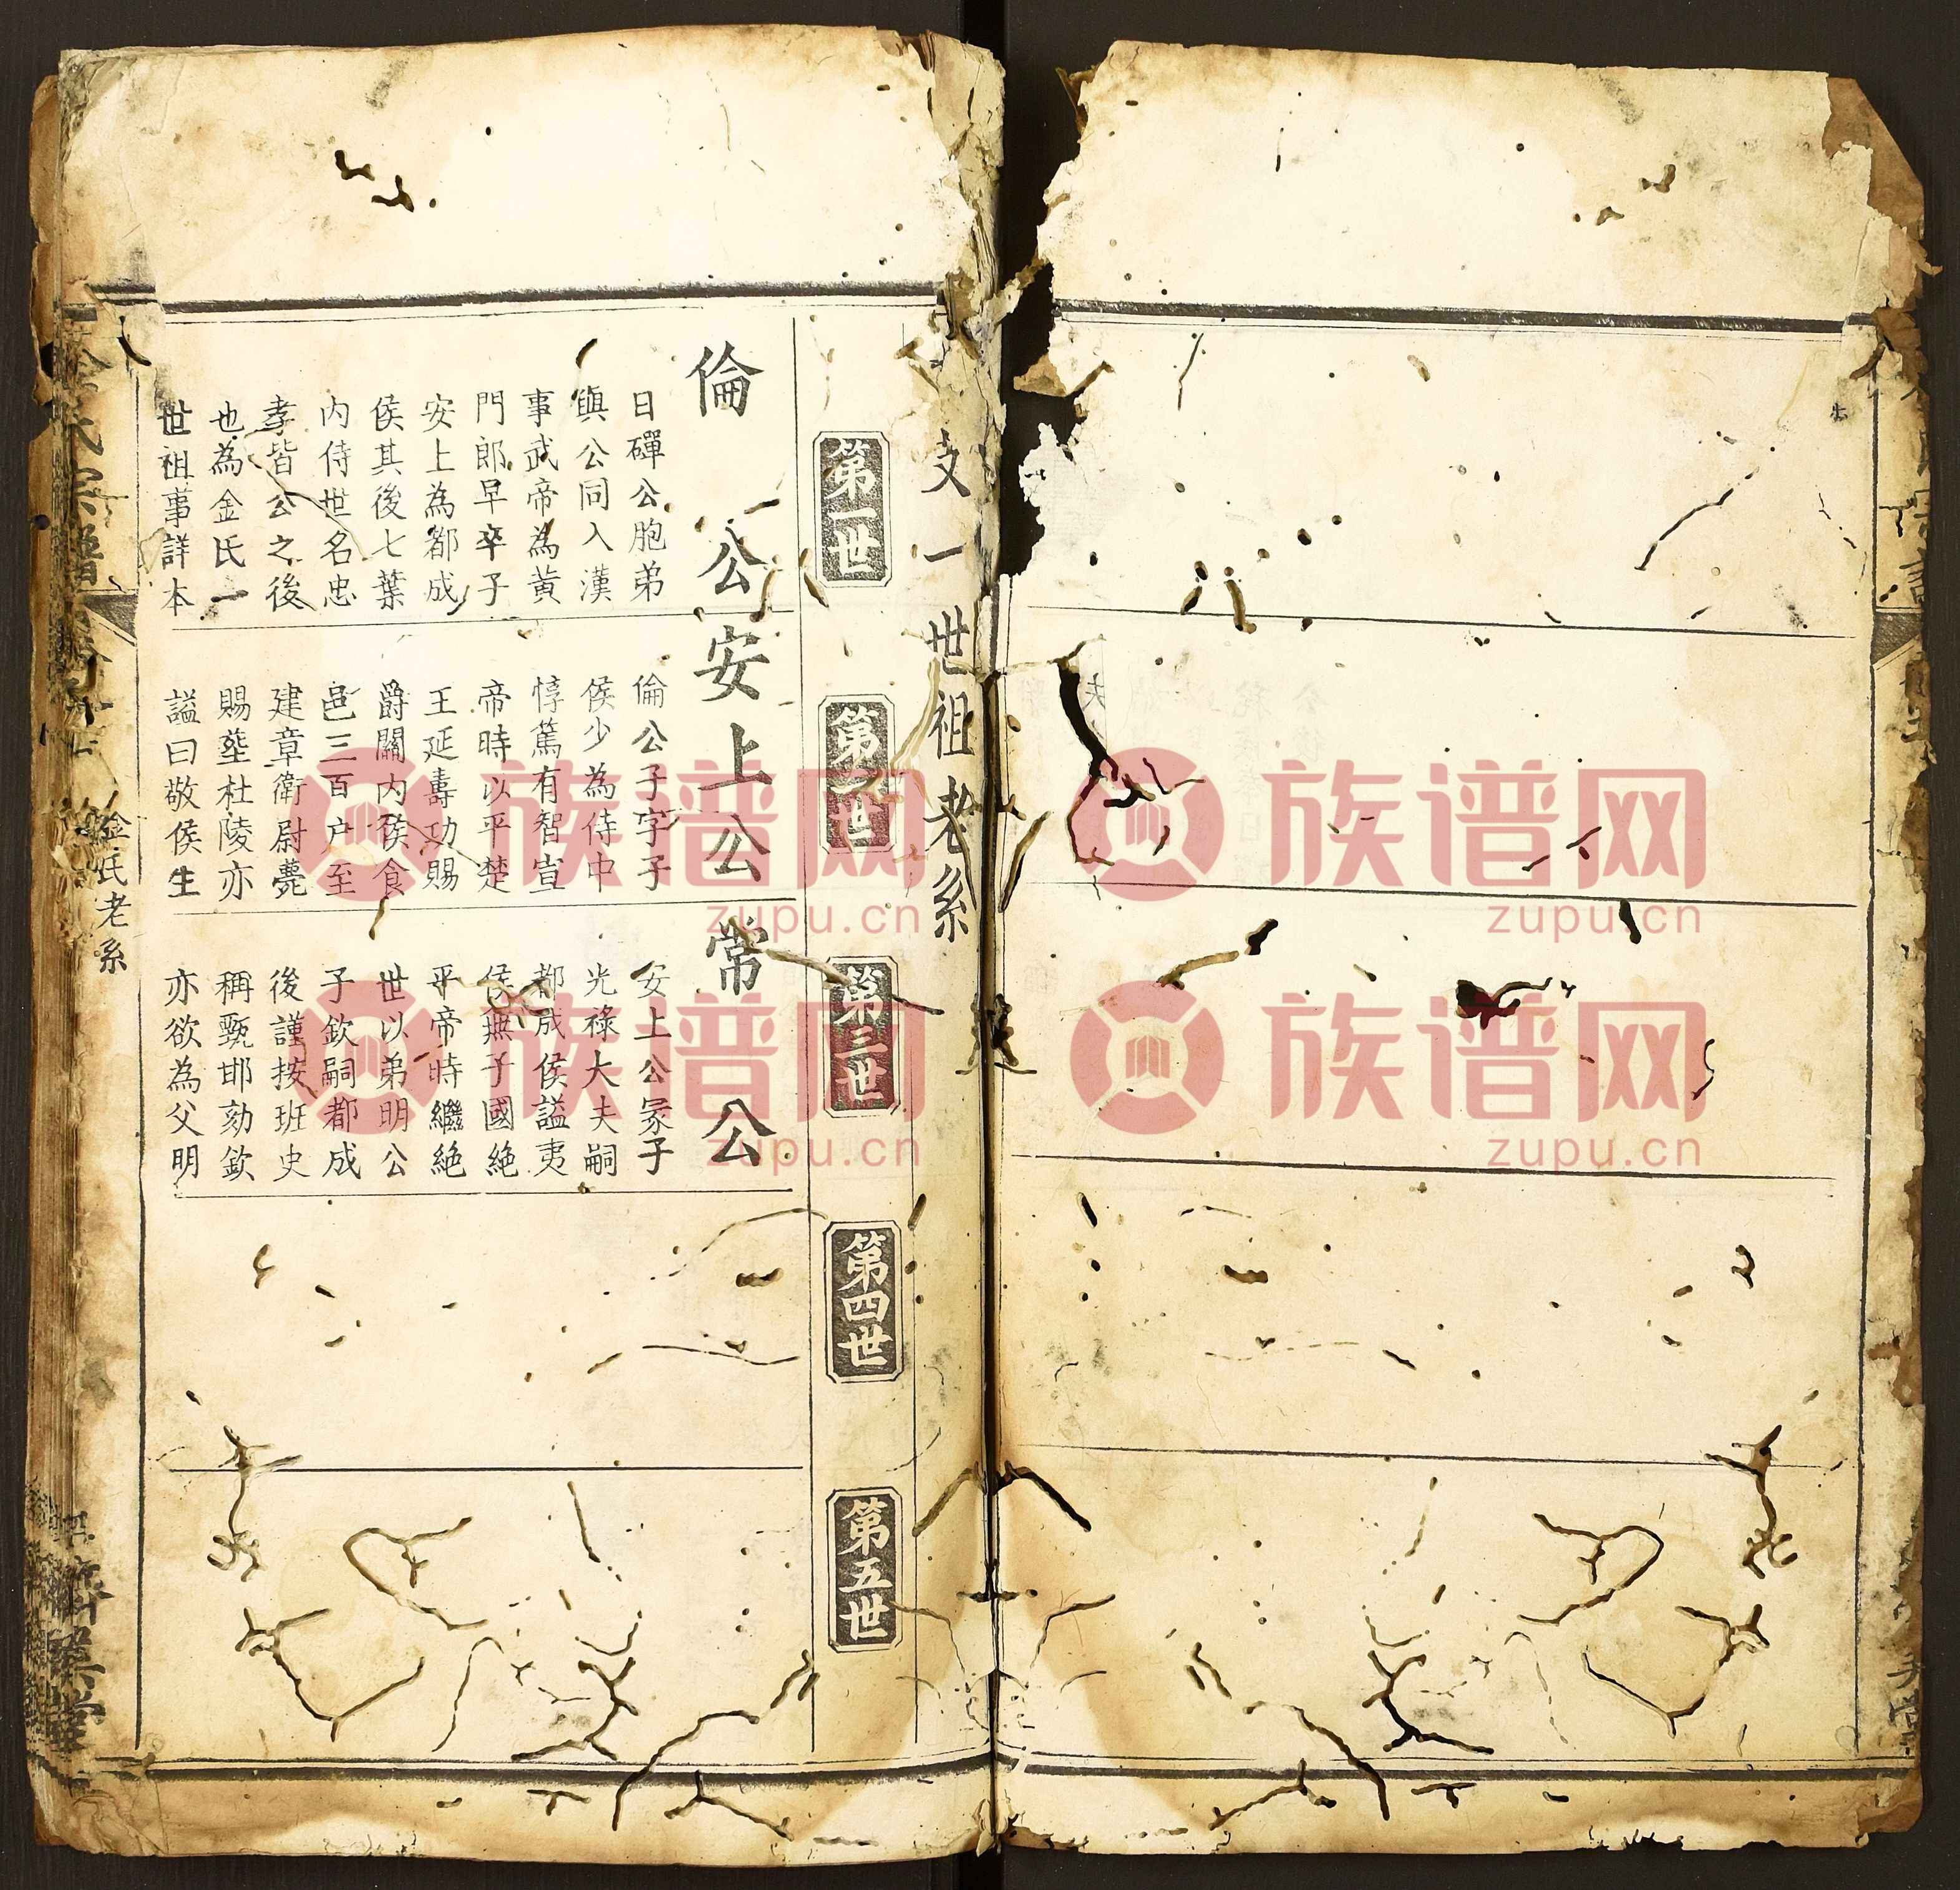 支一世祖老系
第一世
第二世
第三世
第四世
第五世
倫公
日磾公胞弟
與公同入漢
事武帝為黄
門郎早卒子
安上為都成
侯其後七葉
内侍世名忠
孝皆公之後
也為金氏一
世祖事詳本
安上公
倫公子字子
侯少為侍中
惇篤有智宣
帝時以平楚
王延壽功賜
爵關内侯食
邑三百户至
建章衛尉薨
賜塋杜陵亦
謚曰敬侯生
常公
安上公冡子
光祿大夫嗣
都成侯謚夷
侯無子國絶
平帝時繼絶
世以弟明公
子欽嗣都成
後謹按班史
稱甄邯劾欽
亦欲為父明
氏宗譜
金氏老系
堂
族谱网
zupu.cn
族谱网
zupu.cn
族谱网
zupu.cn
族谱网
zupu.cn